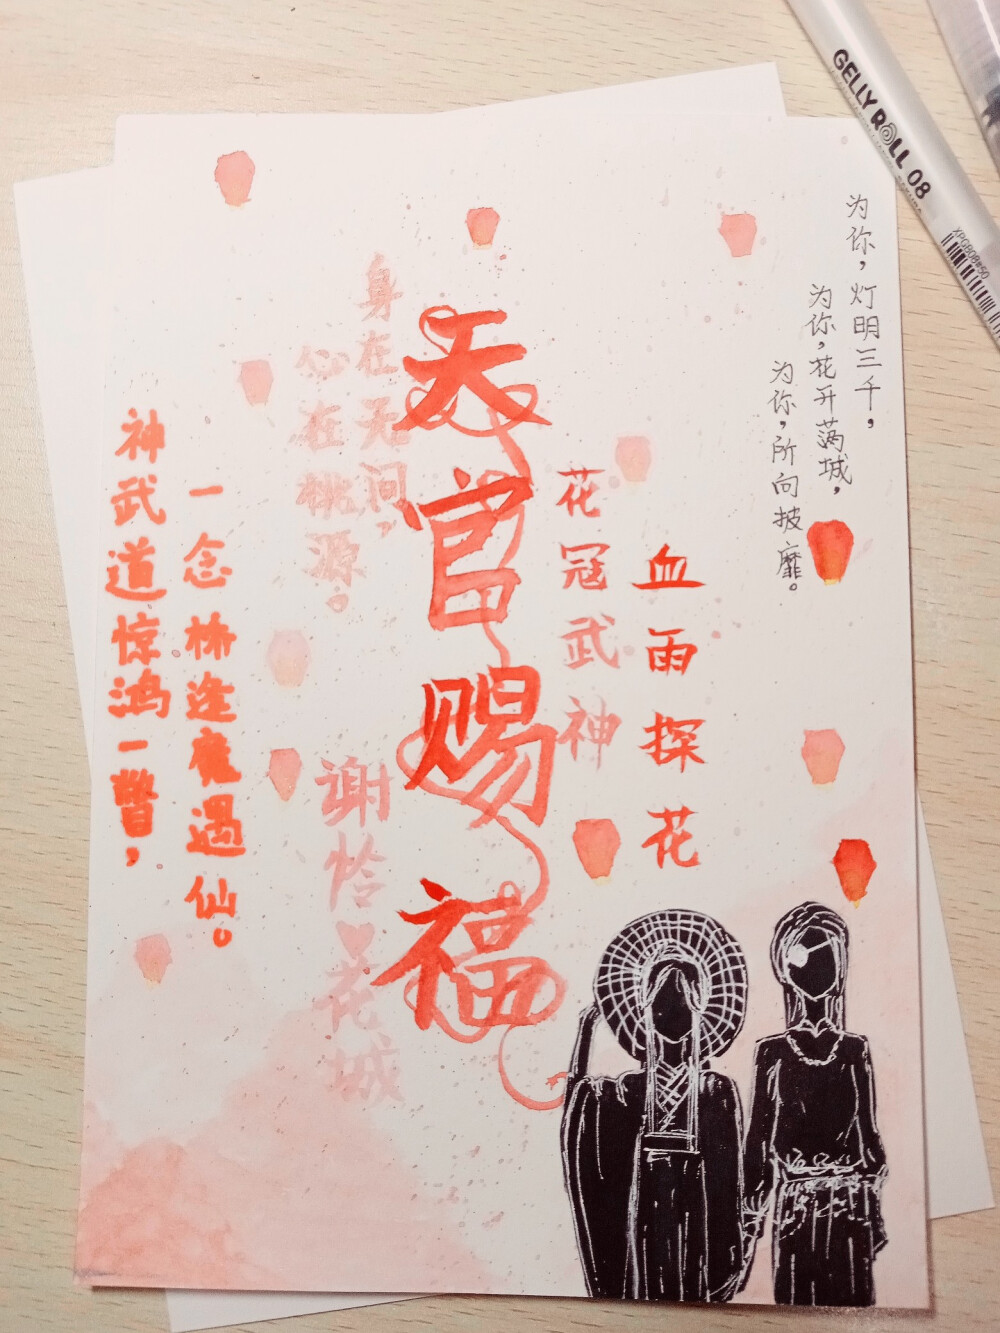 为你,灯明三千,
为你,花开满城,
为你,所向披靡。
血雨探花
花冠武神
天官赐福
身在无间,
心在桃源。
谢怜♥花城
神武道惊鸿一瞥,
一念桥逢魔遇仙。
GELLY ROLL 08
XPGB08#50